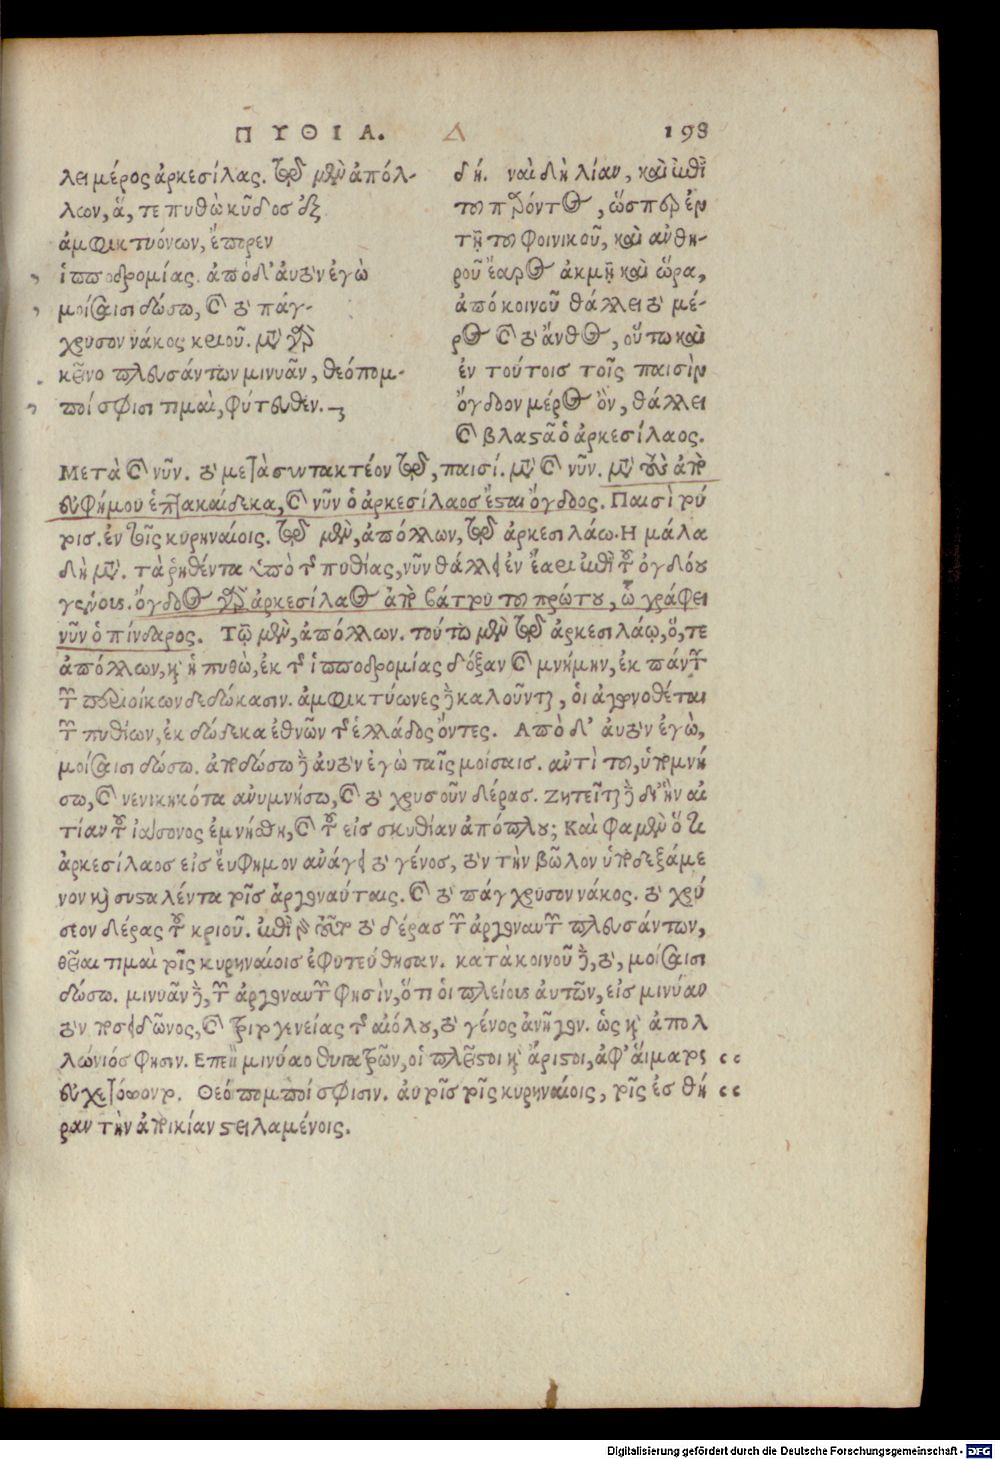 ΠΥΘΙΑ. Δ 198
λει μέρος ἀρκεσίλας. τῷ μὲν ἀπόλ-
λων, ἅ, τε πυθὼ κῦδος ἐξ
ἀμφικτυόνων, ἔπορεν
ἱπποδρομίας. ἀπὸ δ' αὐτὸν ἐγὼ
μοίσαισι δώσω, καὶ τὸ πάγ-
χρυσον νάκος κριοῦ. μετὰ γὰρ
κεῖνο πλευσάντων μινυᾶν, θεόπομ-
ποί σφισι τιμαὶ, φύτευθεν.
δή. ναὶ δὴ λίαν, καὶ ἐπὶ
τοῦ παρόντος, ὥσπερ ἐν
τῇ τοῦ φοινικοῦ, καὶ ἀνθη-
ροῦ ἔαρος ἀκμῇ καὶ ὥρα,
ἀπὸ κοινοῦ θάλλει τὸ μέ-
ρος καὶ τὸ ἄνθος, οὕτω καὶ
ἐν τούτοις τοῖς παισὶν
ὄγδοον μέρος ὂν, θάλλει
καὶ βλαστᾶ ὁ ἀρκεσίλαος.
Μετὰ καὶ νῦν. τὸ μετὰ συντακτέον τῷ, παισί. μετὰ καὶ νῦν. μετὰ τοὺς ἀπὸ
εὐφήμου ἑπτακαίδεκα, καὶ νῦν ὁ ἀρκεσίλαος ἔσται ὄγδοος. Παισὶ τού
τοις. ἐν τοῖς κυρηναίοις. τῷ μὲν, ἀπόλλων, τῷ ἀρκεσιλάω. Η μάλα
δὴ μετὰ. τὰ ῥηθέντα ὑπὸ τῆς πυθίας, νῦν θάλλει ἐν ἔαρι ἐπὶ τοῦ ὀγδόου
γένους. ὄγδοος γὰρ ἀρκεσίλαος ἀπὸ βάττου τοῦ πρώτου, ᾧ γράφει
νῦν ὁ πίνδαρος. Τῷ μὲν, ἀπόλλων. τούτω μὲν τῷ ἀρκεσιλάῳ, ὅ, τε
ἀπόλλων, καὶ ἡ πυθὼ, ἐκ τῆς ἱπποδρομίας δόξαν καὶ μνήμην, ἐκ πάντων
τῶν περιοίκων δεδώκασιν. ἀμφικτύωνες δὲ καλοῦνται, οἱ ἀγωνοθέται
τῶν πυθίων, ἐκ δώδεκα ἐθνῶν τῆς ἑλλάδος ὄντες. Απὸ δ' αὐτὸν ἐγὼ,
μοίσαισι δώσω. ἀποδώσω δὲ αὐτὸν ἐγὼ ταῖς μοίσαις. ἀντὶ τοῦ, ὑπομνή
σω, καὶ νενικηκότα ἀνυμνήσω, καὶ τὸ χρυσοῦν δέρας. Ζητεῖται δὲ δι' ἣν αἰ
τίαν τοῦ ἰάσονος ἐμνήσθη, καὶ τοῦ εἰς σκυθίαν ἀπόπλου; Καὶ φαμὲν ὅτι
ἀρκεσίλαος εἰς εὔφημον ἀνάγει τὸ γένος, τὸν τὴν βῶλον ὑποδεξάμε
νον καὶ συσταλέντα τοῖς ἀργοναύταις. καὶ τὸ πάγχρυσον νάκος. τὸ χρύ
σεον δέρας τοῦ κριοῦ. ἐπὶ γὰρ τοῦτο τὸ δέρας τῶν ἀργοναυτῶν πλευσάντων,
θεῖαι τιμαὶ τοῖς κυρηναίοις ἐφυτεύθησαν. κατὰ κοινοῦ δὲ, τὸ, μοίσαισι
δώσω. μινυᾶν δὲ, τῶν ἀργοναυτῶν φησὶν, ὅτι οἱ πλείους αὐτῶν, εἰς μινύαν
τὸν ποσειδῶνος, καὶ τριτογενείας τῆς αἰόλου, τὸ γένος ἀνῆγον. ὡς καὶ ἀπολ
λώνιός φησιν. Επεὶ μινύαο θυγατρῶν, οἱ πλεῖστοι καὶ ἄριστοι, ἀφ' αἵματος
εὐχετόωντο. Θεόπομποί σφισιν. αὐτοῖς τοῖς κυρηναίοις, τοῖς ἐς θή
ραν τὴν ἀποικίαν στειλαμένοις.
Digitalisierung gefördert durch die Deutsche Forschungsgemeinschaft - DFG